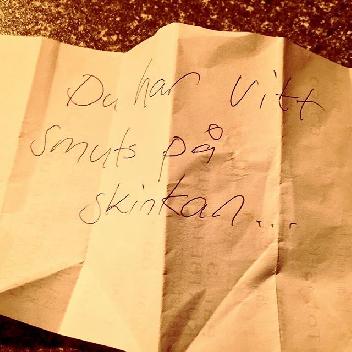 Du har vitt
Smuts på
skinkan...